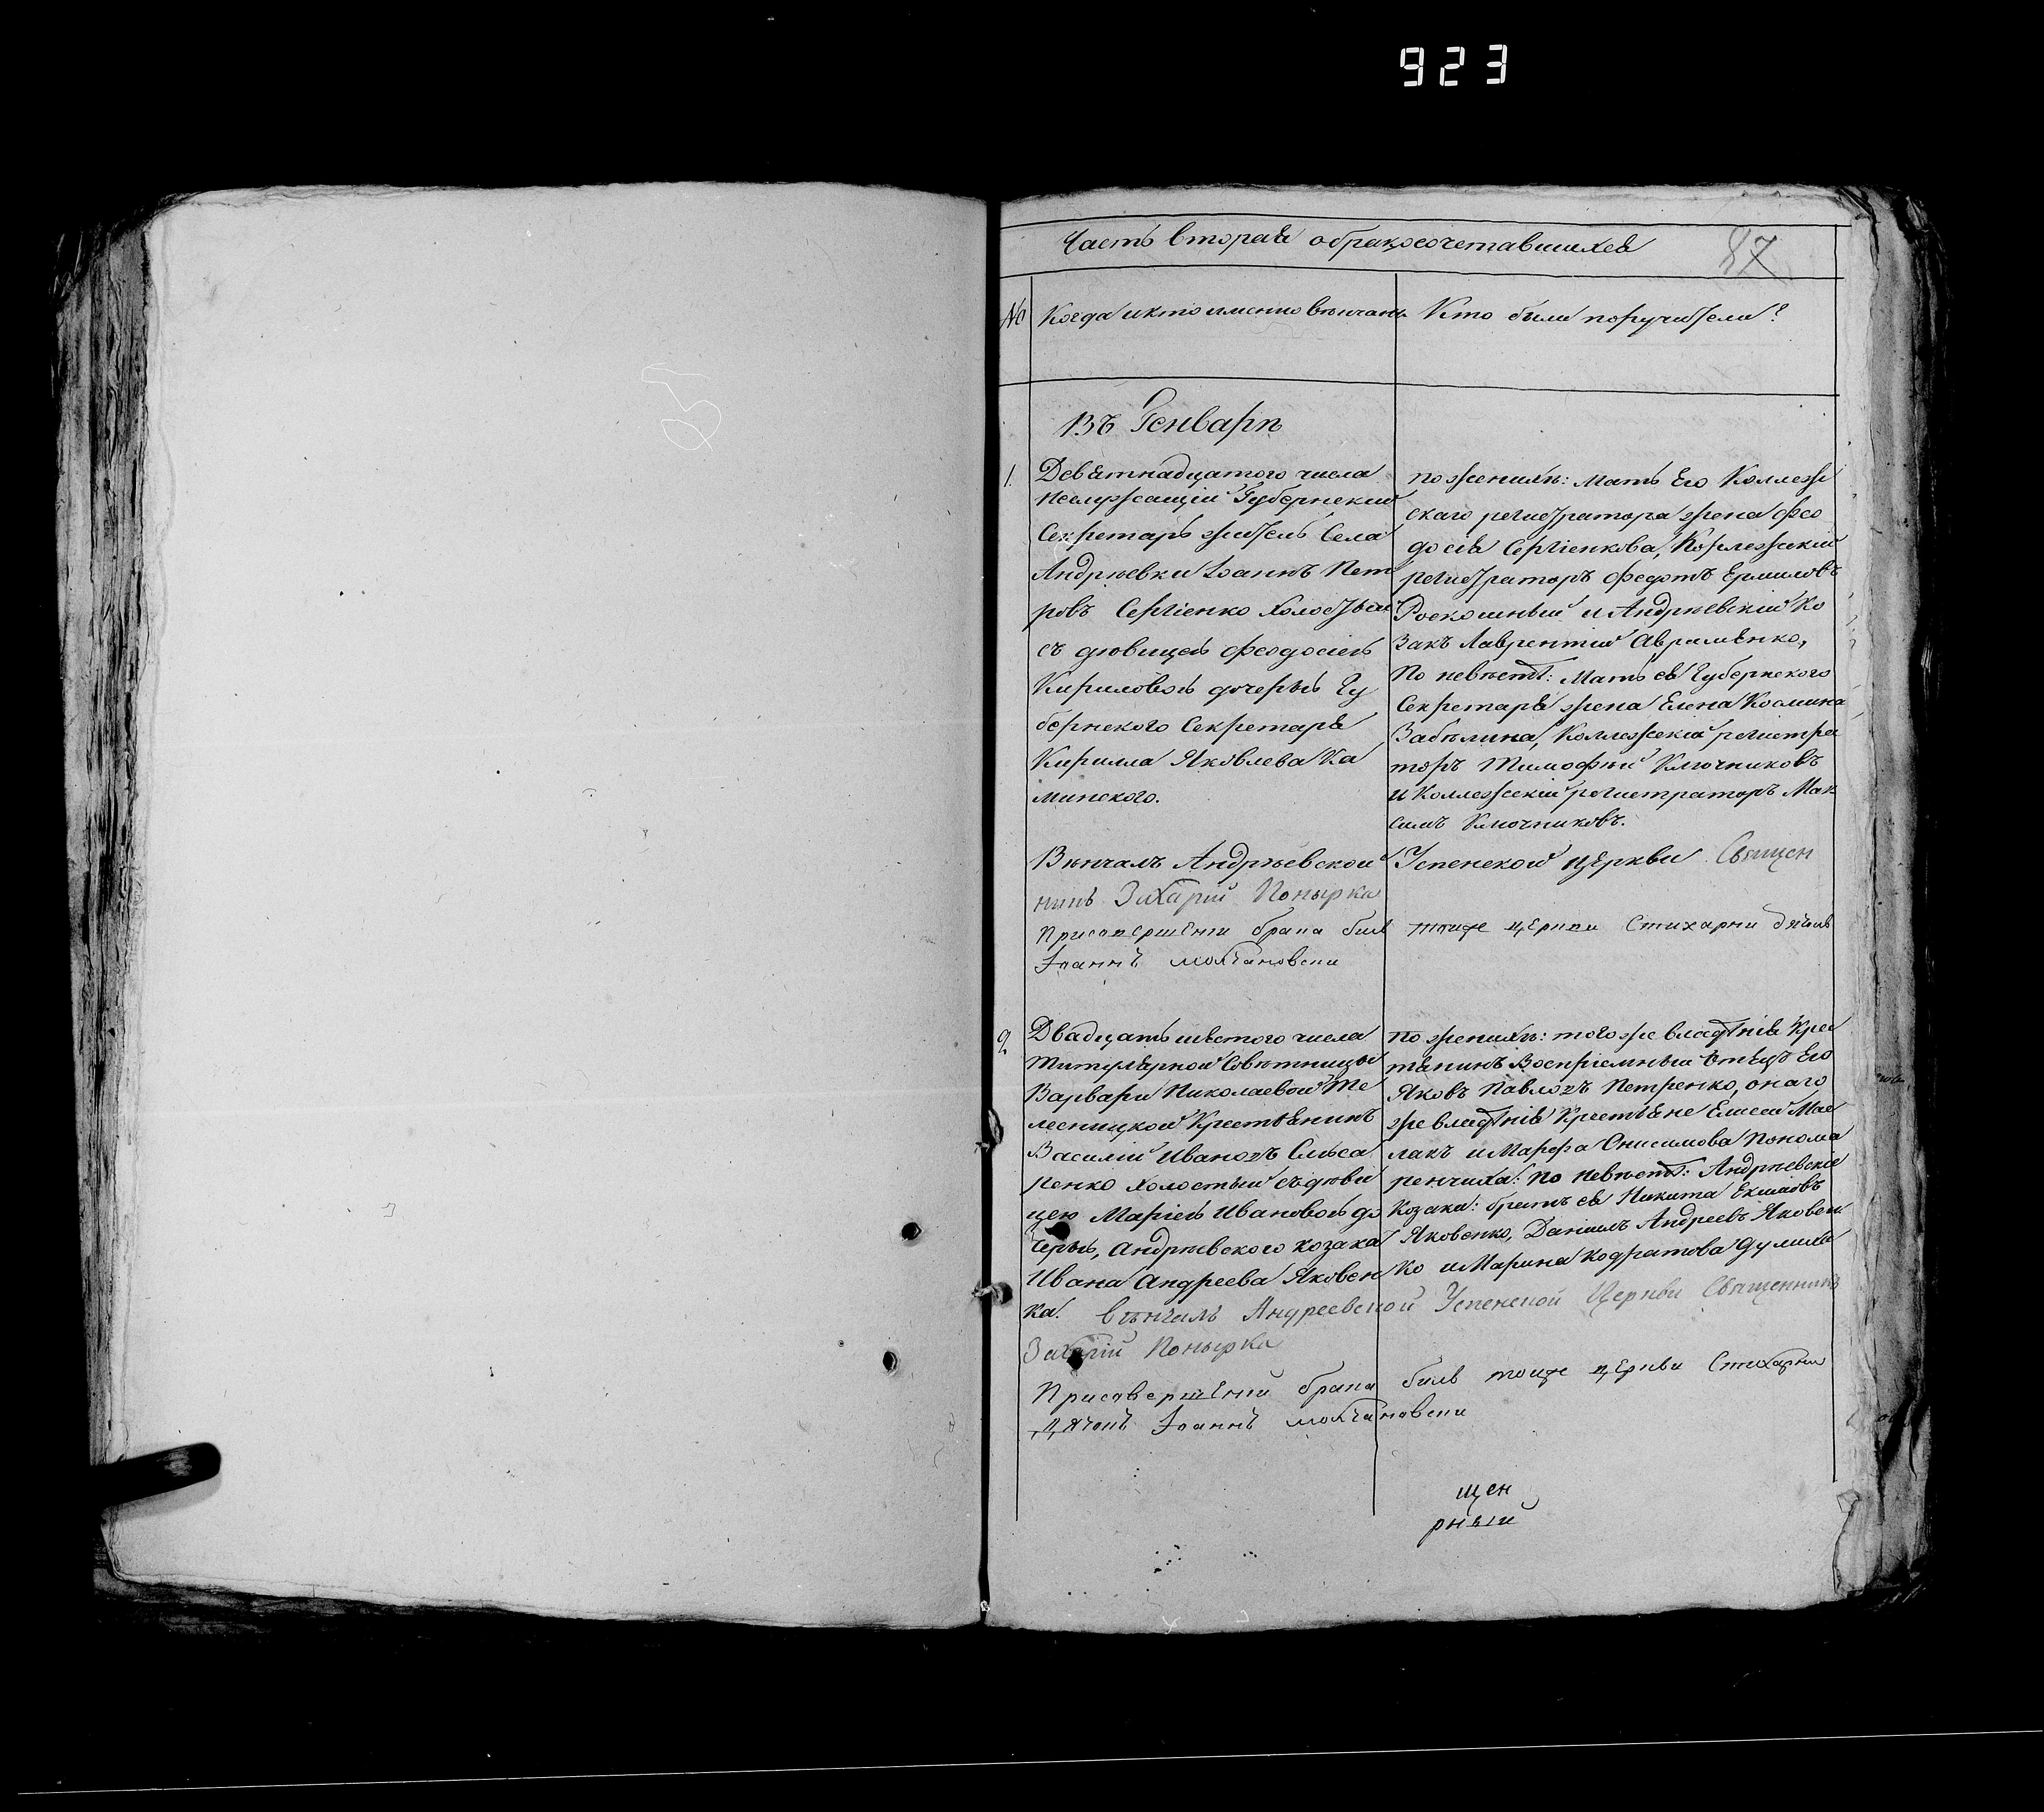 923
Часть вторая о бракосочетавшихся
87
№ Когда и кто именно венчаны
Кто были поручители?
Въ Генварѣ
1. Девятнадцатого числа
Неслужащій Губернскій
Секретарь житель Села
Андрѣевки Іоаннъ Пет
ровъ Сергіенко холостый
съ дѣвицею Феодосіею
Кириловою дочерью Гу
бернского Секретаря
Кирилла Яковлева Ка
минского.
по женихѣ: Мать Его Коллеж
скаго регистратора жена Фео
досія Сергіенкова, Колежский
регистраторъ Федотъ Ермиловъ
Роскошный и Андрѣевскій Ко
закъ Лаврентій Авраменко,
По невѣстѣ: Мать ея Губернского
Секретаря жена Елена Космина
Забѣлина, Коллежскій регистра
торъ Тимофѣй Ключниковъ
и Коллежскій регистраторъ Мак
симъ Ключниковъ.
Вѣнчалъ Андрѣевской Успенской церкви Священ
никъ Захарій Понырка
Присовершени брака билъ тоиже церкви Стихарни дячокъ
Іоаннъ Молчановски
2. Двадцать шестого числа
Титулярной Совѣтницы
Варвари Николаевой Те
лесницкой Крестьянинъ
Василій Ивановъ Слѣса
ренко холостый съ дѣви
цею Маріею Ивановою до
черью, Андрѣевского козака
Ивана Андреева Яковен
ка.
по женихѣ: того же владѣнія Крес
тянинъ Воспріемный отецъ Его
Яковъ Павловъ Петренко, онаго
же владѣнія Крестьяне Елисей Мас
лакъ и Марфа Онисимова Понома
ренчиха: по невѣстѣ: Андрѣевскіе
Козаки: братъ ея Никита Екимовъ
Яковенко, Даніилъ Андреевъ Яковен
ко и Марина Кодратова Дулиха
вѣнчалъ Андреевской Успенской Церкви Священникъ
Захарій Понырка
Присовершени брака билъ тоиже церкви Стихарни
дячокъ Іоаннъ Молчановски
щен
рный